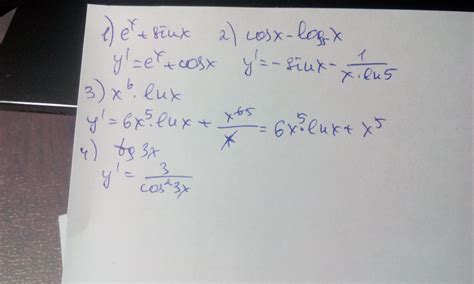 1) eˣ + sinx 2) cosx - log₅x
y' = eˣ + cosx y' = -sinx - 1/(x·ln5)
3) x⁶ · lnx
y' = 6x⁵·lnx + x⁶⁵/x = 6x⁵·lnx + x⁵
4) tg 3x
y' = 3/cos²3x